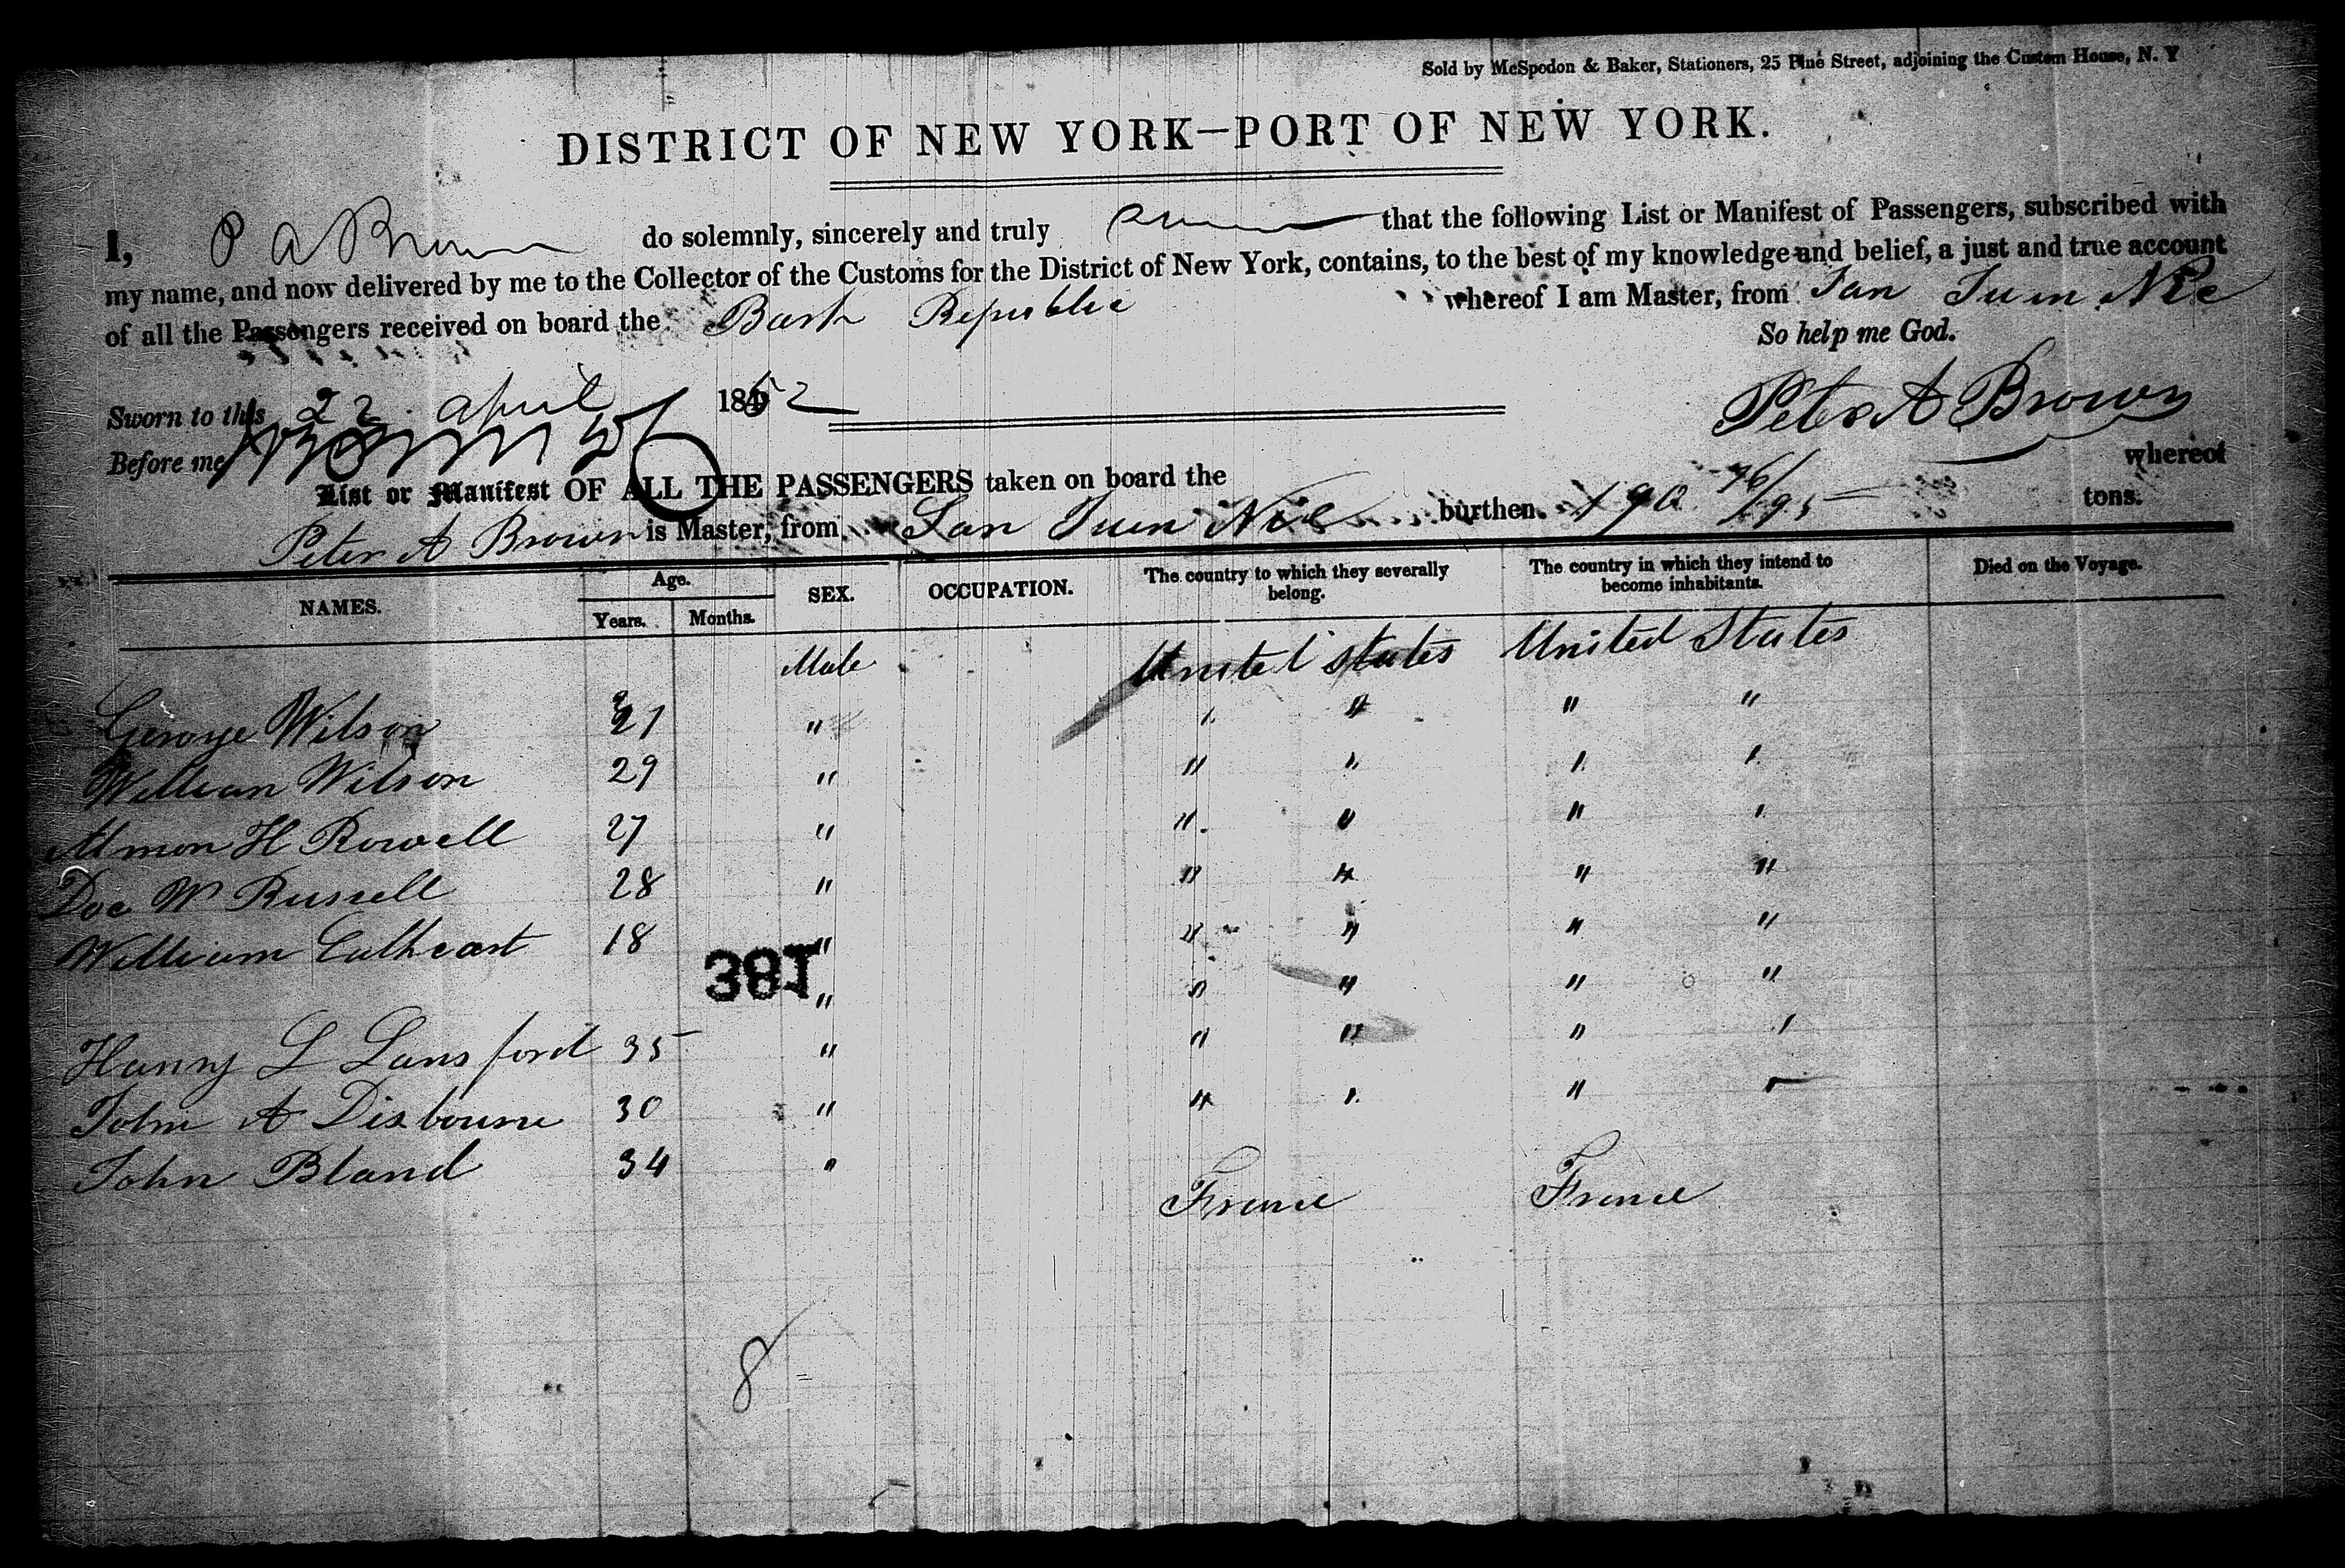 Sold by McSpedon & Baker, Stationers, 25 Pine Street, adjoining the Custom House, N. Y
DISTRICT OF NEW YORK—PORT OF NEW YORK.
I, P A Brown do solemnly, sincerely and truly that the following List or Manifest of Passengers, subscribed with
my name, and now delivered by me to the Collector of the Customs for the District of New York, contains, to the best of my knowledge and belief, a just and true account
of all the Passengers received on board the Bark Republic whereof I am Master, from San Juan Nic
So help me God.
Sworn to this 22 april 1852
Peter A Brown
Before me
List or Manifest OF ALL THE PASSENGERS taken on board the whereof
Peter A Brown is Master, from San Juan Nic burthen 190 76/95 tons.
NAMES. Age. Years. Months. SEX. OCCUPATION. The country to which they severally belong. The country in which they intend to become inhabitants. Died on the Voyage.
Male United States United States
George Wilson " " " "
William Wilson 29 " " " " "
Almon H Rowell 27 " " " " "
Doc W Russell 28 " " " " "
William Cathcart 18 " " " " "
381 " " " " "
Hanny L Lansford 35 " " " " "
John A Disbourne 30 " " " "
John Bland 34 "
France France
8